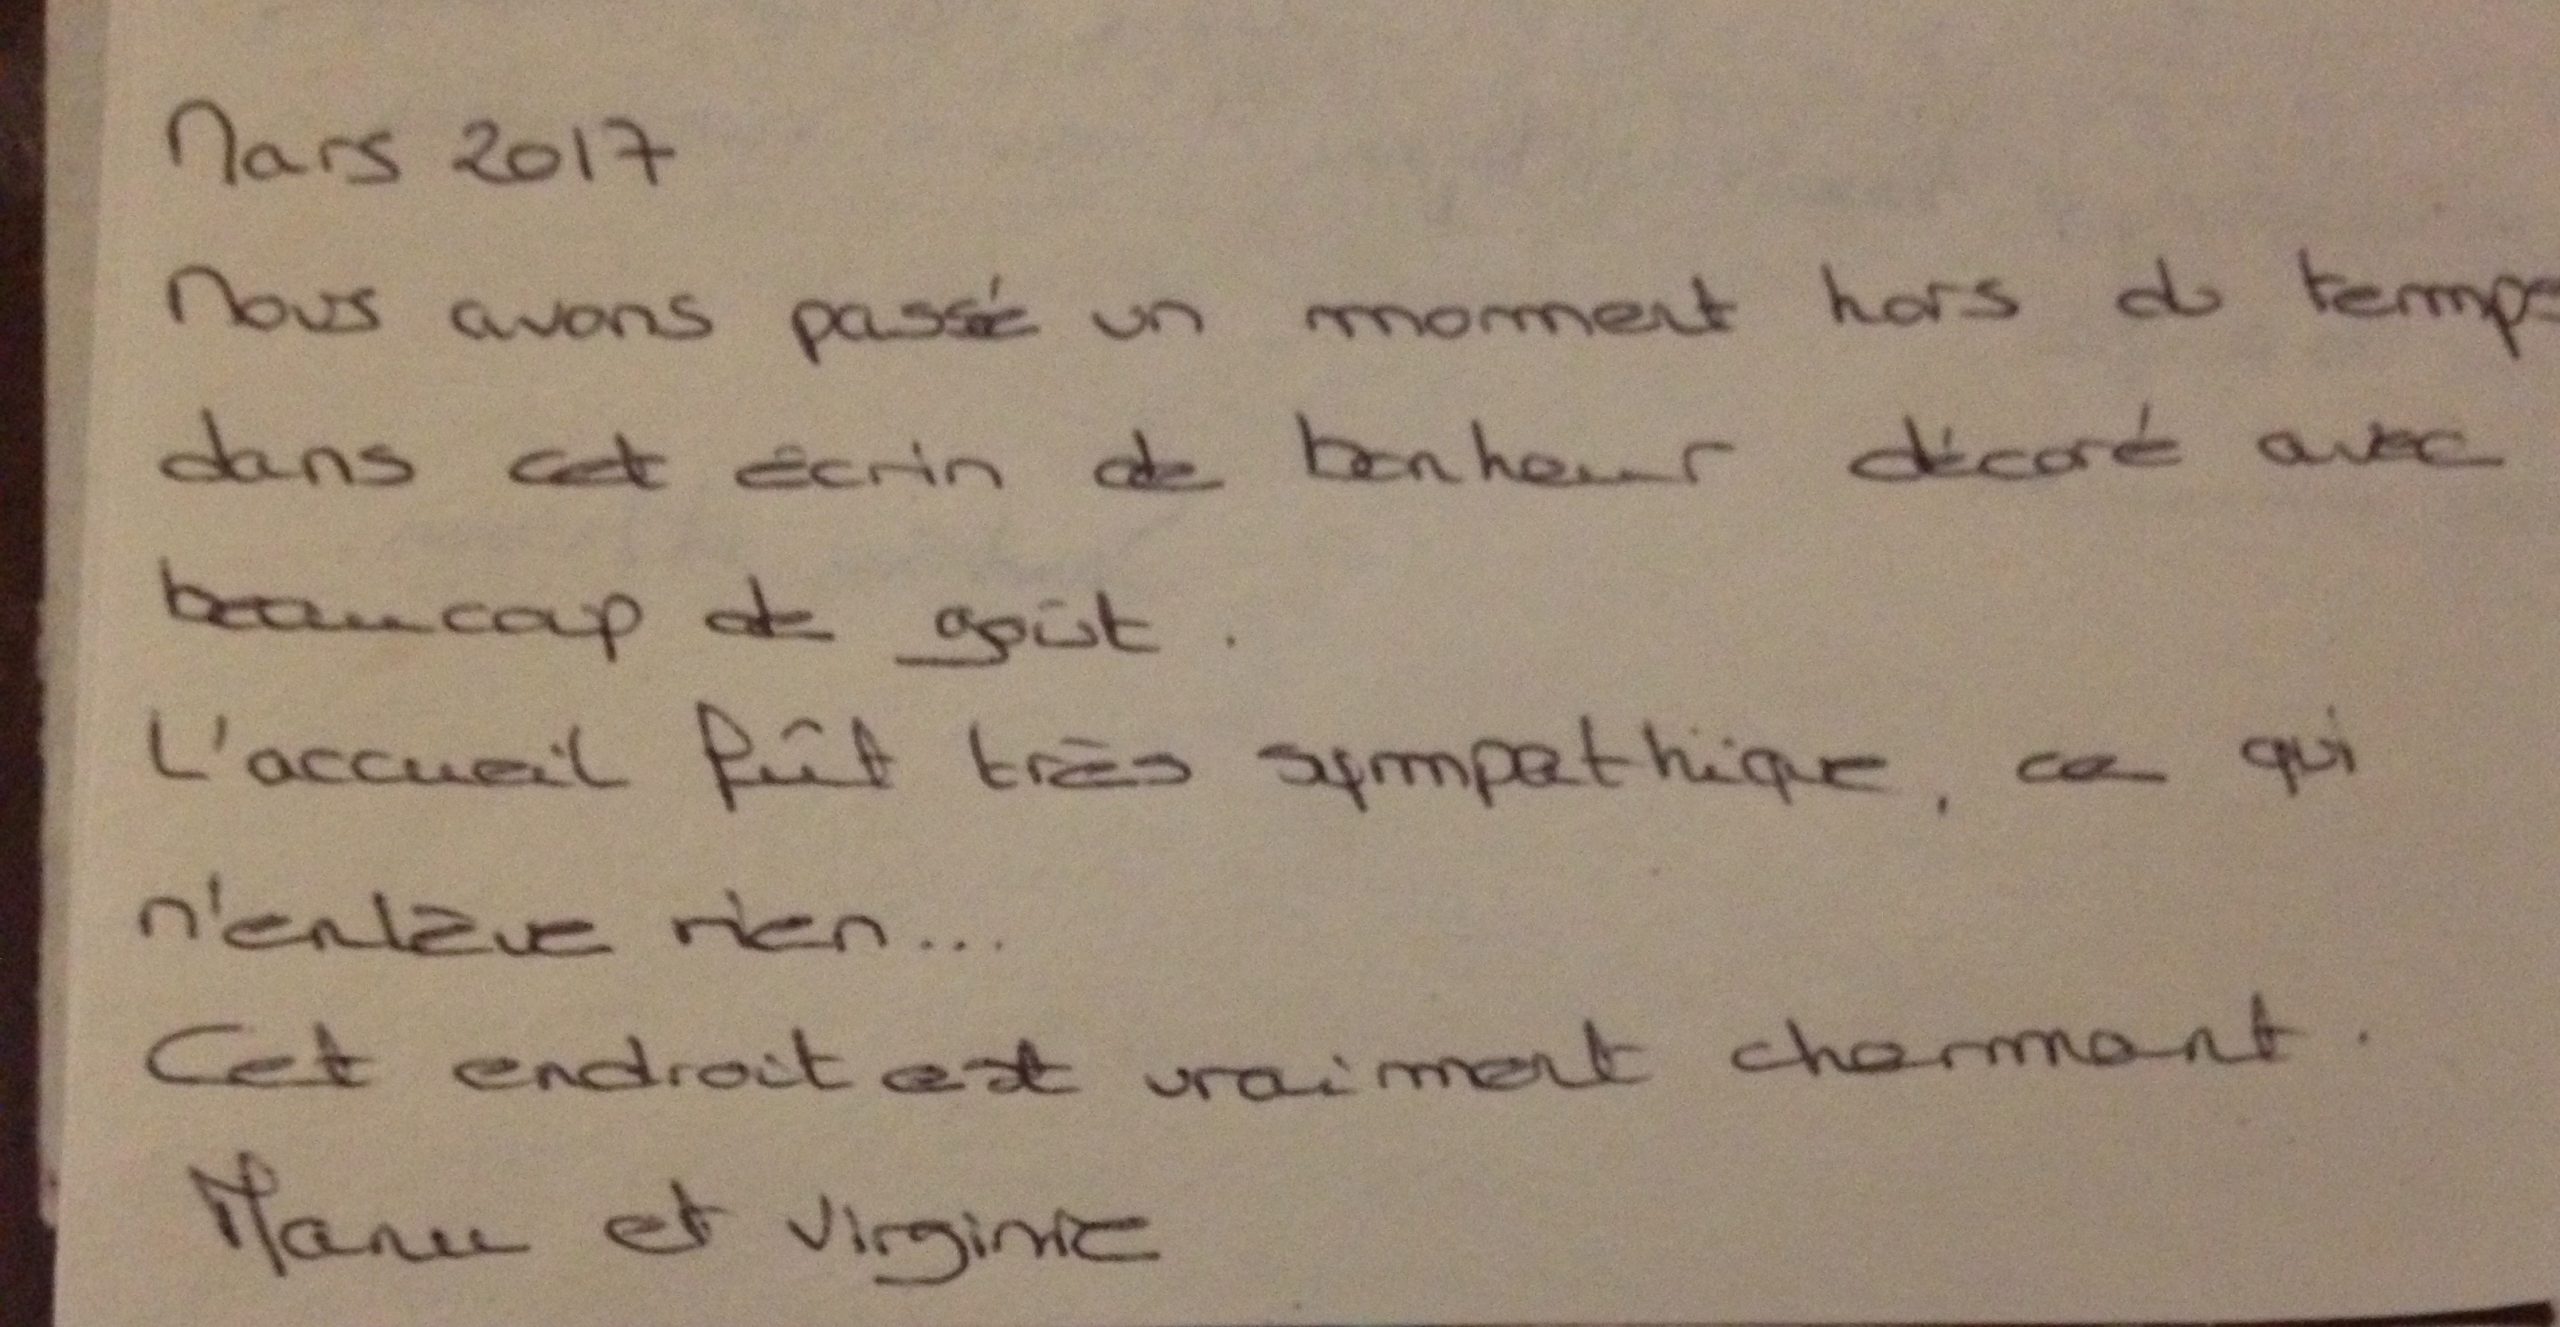 Mars 2017
Nous avons passé un moment hors du temps
dans cet écrin de bonheur décoré avec
beaucoup de goût.
L'accueil fût très sympathique, ce qui
n'enlève rien...
Cet endroit est vraiment charmant.
Manu et Virginie